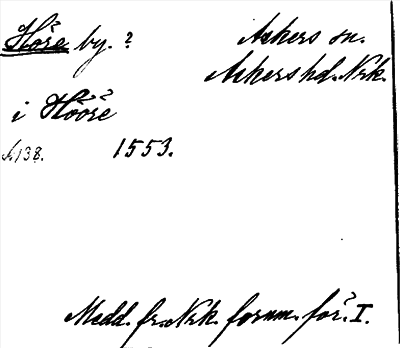 Höre by. ? Askers sn.
Askers hd. Nrk.
i Hööre
s. 138. 1553.
Medd. fr. Nrk. fornm. för. I.